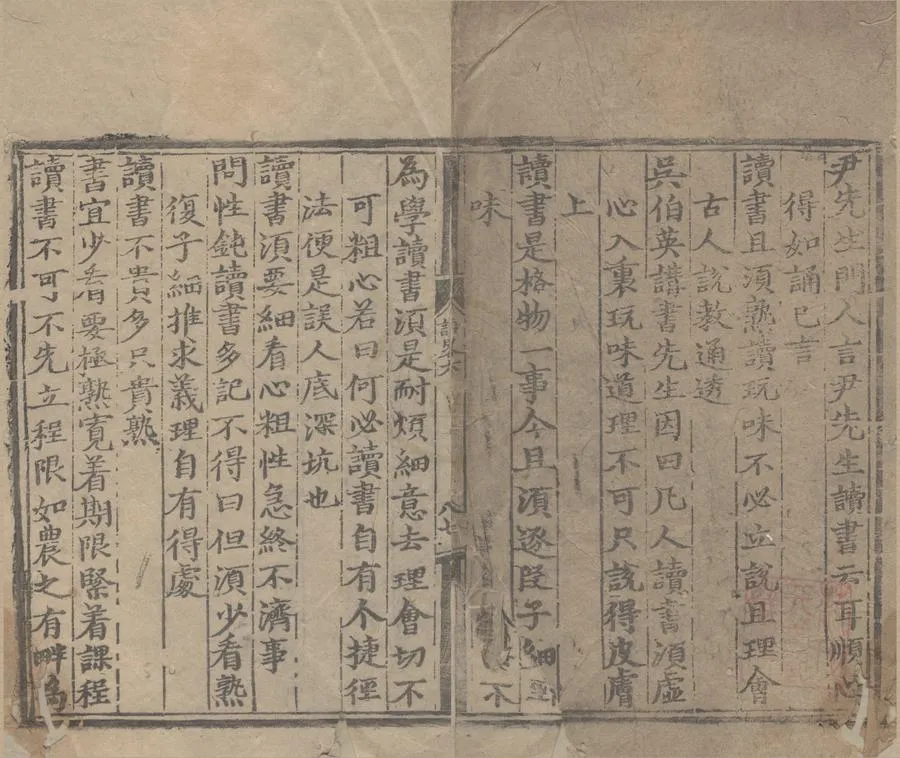 尹先生門人言尹先生讀書云耳順心
得如誦已言
讀書且須熟讀玩味不必立說且理會
古人說教通透
吳伯英講書先生因曰凡人讀書須虛
心入裏玩味道理不可只說得皮膚
上
讀書是格物一事今且須逐段子細
味
為學讀書須是耐煩細意去理會切不
可粗心若曰何必讀書自有个捷徑
法便是誤人底深坑也
讀書須要細看心粗性急終不濟事
問性鈍讀書多記不得曰但須少看熟
復子細推求義理自有得處
讀書不貴多只貴熟
書宜少看要極熟寬着期限緊着課程
讀書不可不先立程限如農之有畔為